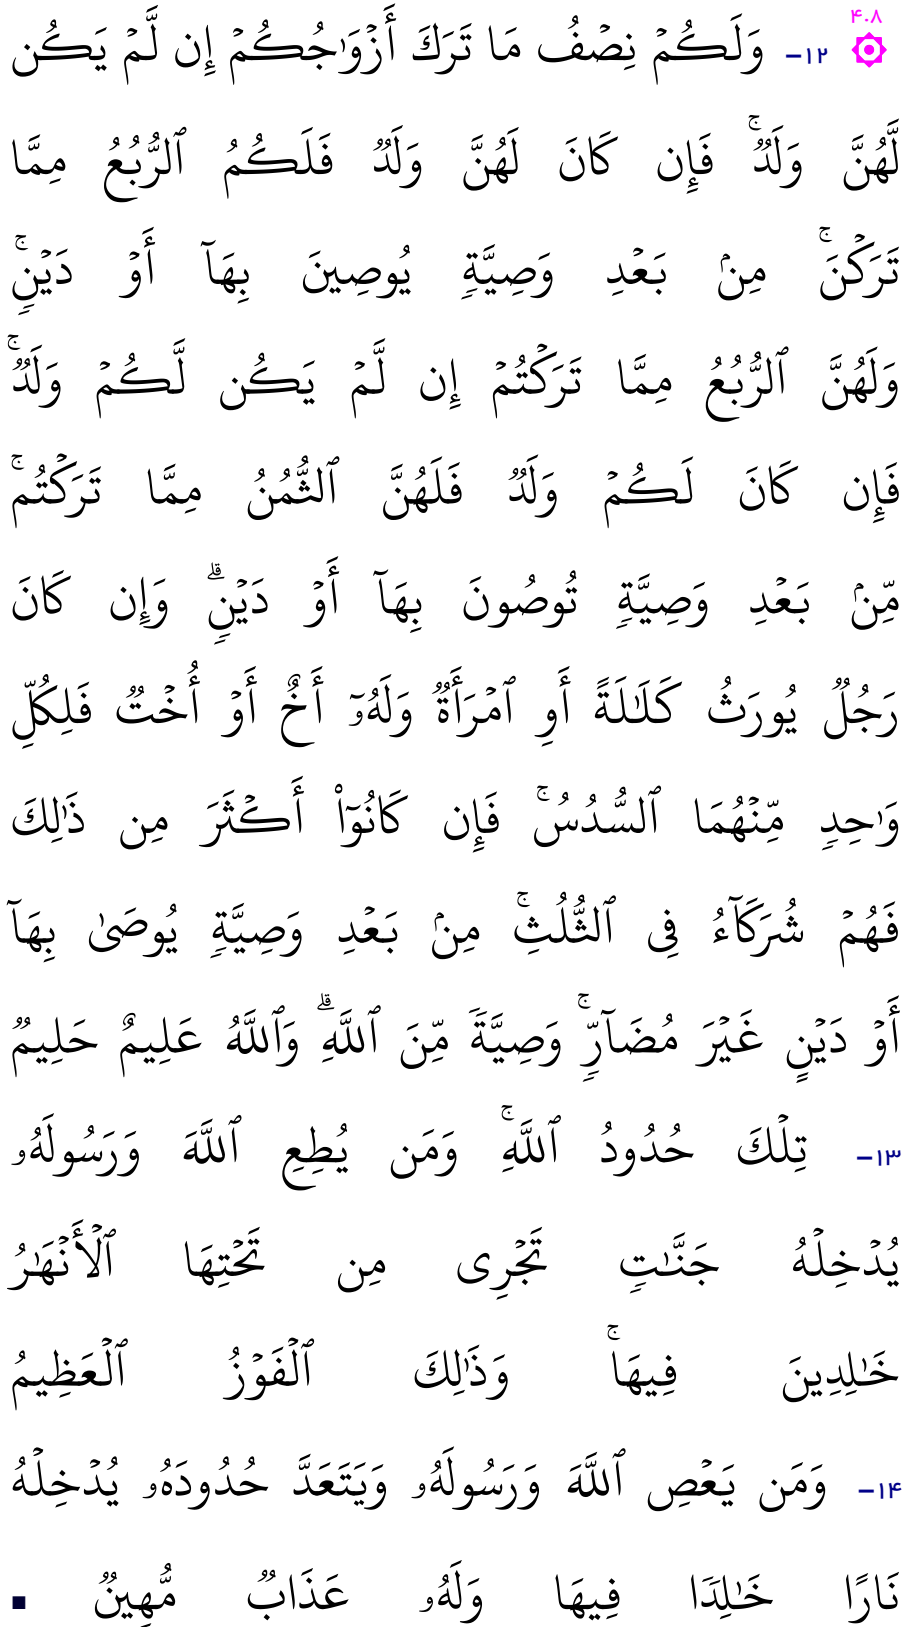 ۴۰۸
۱۲– وَلَكُمۡ نِصۡفُ مَا تَرَكَ أَزۡوَٰجُكُمۡ إِن لَّمۡ يَكُن
لَّهُنَّ وَلَدٞۚ فَإِن كَانَ لَهُنَّ وَلَدٞ فَلَكُمُ ٱلرُّبُعُ مِمَّا
تَرَكۡنَۚ مِنۢ بَعۡدِ وَصِيَّةٖ يُوصِينَ بِهَآ أَوۡ دَيۡنٖۚ
وَلَهُنَّ ٱلرُّبُعُ مِمَّا تَرَكۡتُمۡ إِن لَّمۡ يَكُن لَّكُمۡ وَلَدٞۚ
فَإِن كَانَ لَكُمۡ وَلَدٞ فَلَهُنَّ ٱلثُّمُنُ مِمَّا تَرَكۡتُمۚ
مِّنۢ بَعۡدِ وَصِيَّةٖ تُوصُونَ بِهَآ أَوۡ دَيۡنٖۗ وَإِن كَانَ
رَجُلٞ يُورَثُ كَلَٰلَةً أَوِ ٱمۡرَأَةٞ وَلَهُۥٓ أَخٌ أَوۡ أُخۡتٞ فَلِكُلِّ
وَٰحِدٖ مِّنۡهُمَا ٱلسُّدُسُۚ فَإِن كَانُوٓاْ أَكۡثَرَ مِن ذَٰلِكَ
فَهُمۡ شُرَكَآءُ فِي ٱلثُّلُثِۚ مِنۢ بَعۡدِ وَصِيَّةٖ يُوصَىٰ بِهَآ
أَوۡ دَيۡنٍ غَيۡرَ مُضَآرّٖۚ وَصِيَّةٗ مِّنَ ٱللَّهِۗ وَٱللَّهُ عَلِيمٌ حَلِيمٞ
۱۳– تِلۡكَ حُدُودُ ٱللَّهِۚ وَمَن يُطِعِ ٱللَّهَ وَرَسُولَهُۥ
يُدۡخِلۡهُ جَنَّٰتٖ تَجۡرِي مِن تَحۡتِهَا ٱلۡأَنۡهَٰرُ
خَٰلِدِينَ فِيهَاۚ وَذَٰلِكَ ٱلۡفَوۡزُ ٱلۡعَظِيمُ
۱۴– وَمَن يَعۡصِ ٱللَّهَ وَرَسُولَهُۥ وَيَتَعَدَّ حُدُودَهُۥ يُدۡخِلۡهُ
نَارًا خَٰلِدٗا فِيهَا وَلَهُۥ عَذَابٞ مُّهِينٞ ▪